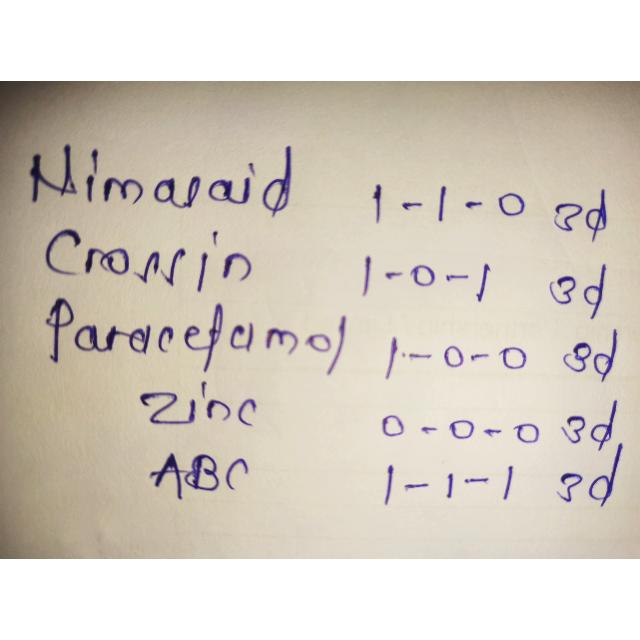 Nimasaid 1-1-0 3d
Crossin 1-0-1 3d
Paracefamol 1-0-0 3d
Zinc 0-0-0 3d
ABC 1-1-1 3d